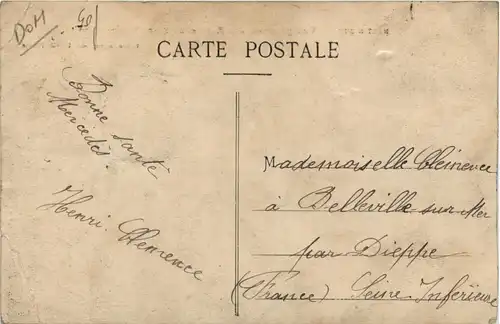 DOM
CARTE POSTALE
Bonne santé
Mercedès.
Henri. Clemence
Mademoiselle Clémence
à Belleville sur Mer
par Dieppe
(France) Seine Inférieure